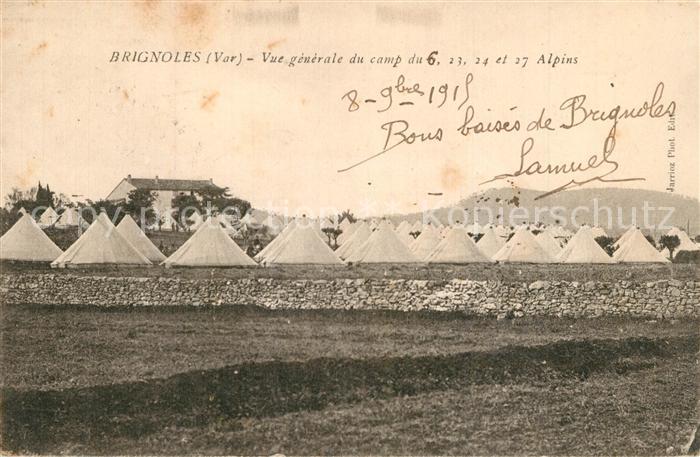 BRIGNOLES (Var) - Vue générale du camp du 6, 23, 24 et 27 Alpins
8-9bre 1915
Bons baisés de Brignoles
Samuel
Jarrioz Phot. Edit.
watermark Kopierschutz